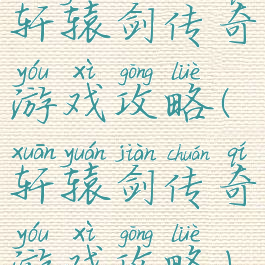 轩辕剑传奇
yóu xì gōng lüè
游戏攻略(
xuān yuán jiàn chuán qí
轩辕剑传奇
yóu xì gōng lüè
游戏攻略)